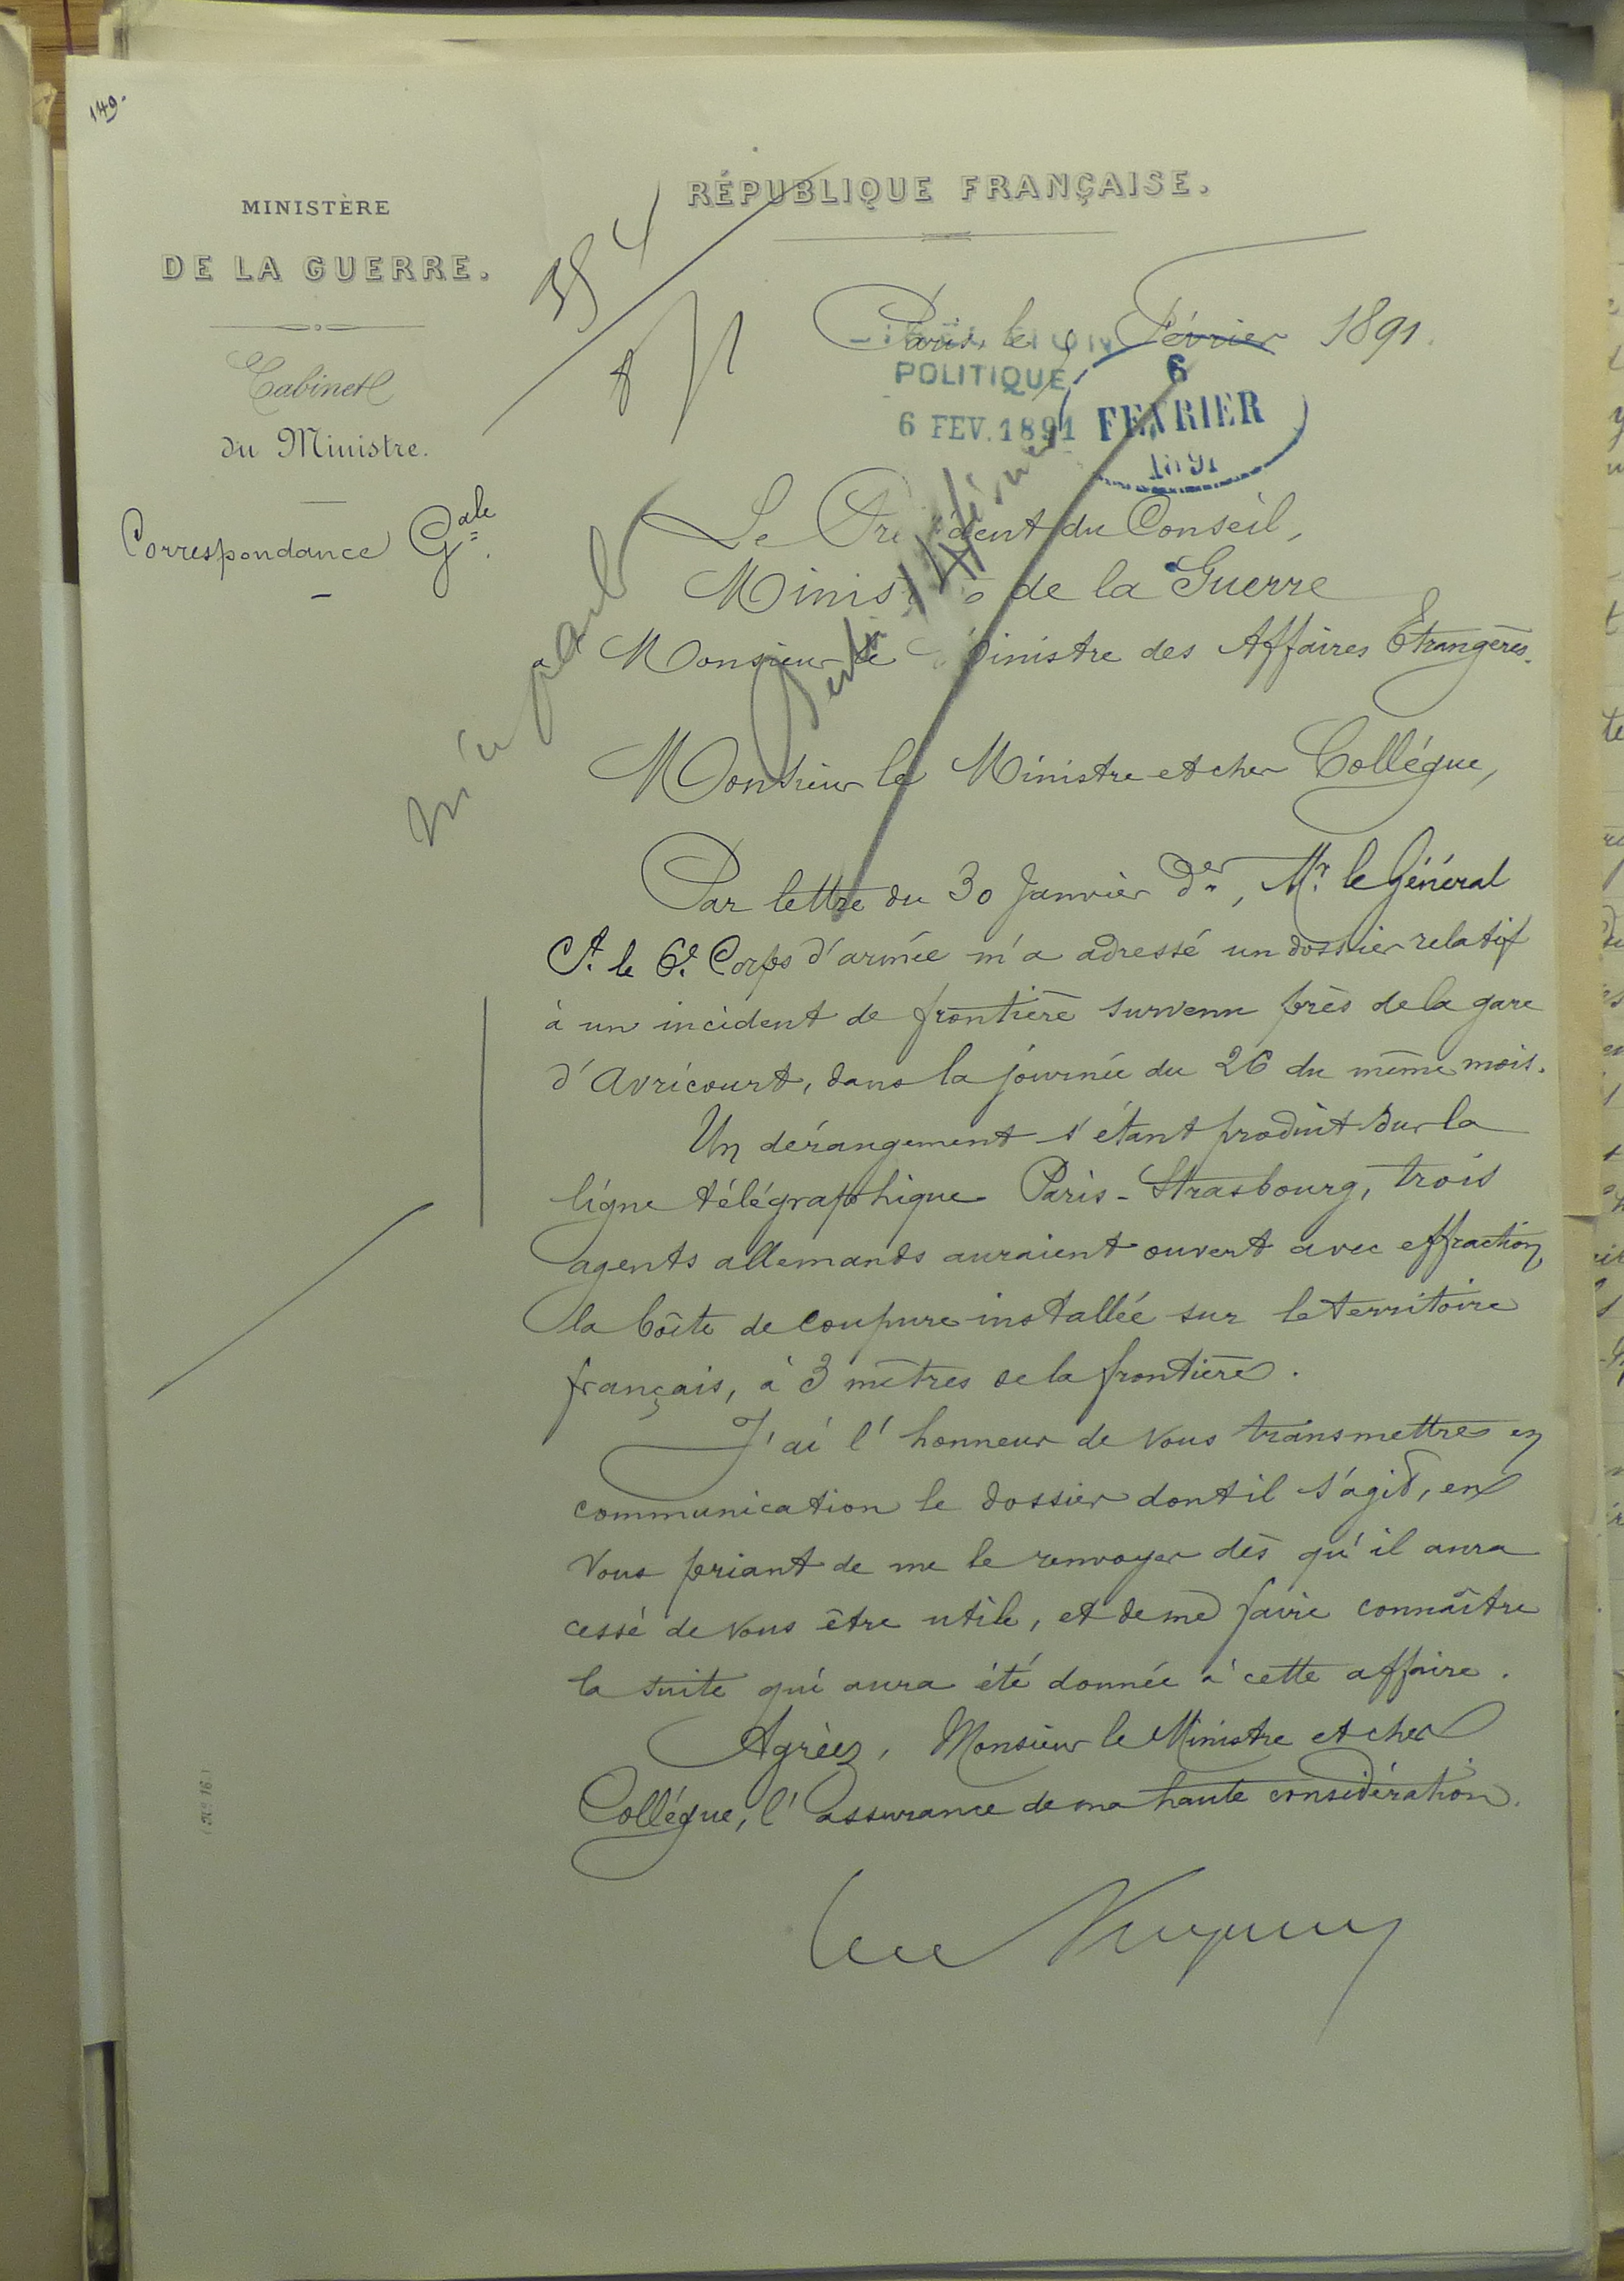 149.
MINISTÈRE
DE LA GUERRE.
Cabinet
du Ministre.
Correspondance Gale
RÉPUBLIQUE FRANÇAISE.
Paris, le Février 1891.
POLITIQUE
6 FEV. 1891
6
FEVRIER
1891
Le Président du Conseil,
Ministre de la Guerre
à Monsieur le Ministre des Affaires Etrangères.
Monsieur le Ministre et cher Collégue,
Par lettre du 30 Janvier der, Mr. le Général
Ct. le 6e. Corps d'armée m'a adressé un dossier relatif
à un incident de frontière survenu près de la gare
d'Avricourt, dans la journée du 26 du même mois.
Un dérangement s'étant produit sur la
ligne télégraphique Paris-Strasbourg, trois
agents allemands auraient ouvert avec effraction,
la boîte de coupure installée sur le territoire
français, à 3 mètres de la frontière.
J'ai l'honneur de vous transmettre en
communication le dossier dont il s'agit, en
vous priant de me le renvoyer dès qu'il aura
cessé de vous être utile, et de me faire connaître
la suite qui aura été donnée à cette affaire.
Agréez, Monsieur le Ministre et cher
Collégue, l'assurance de ma haute considération.
(No 16.)